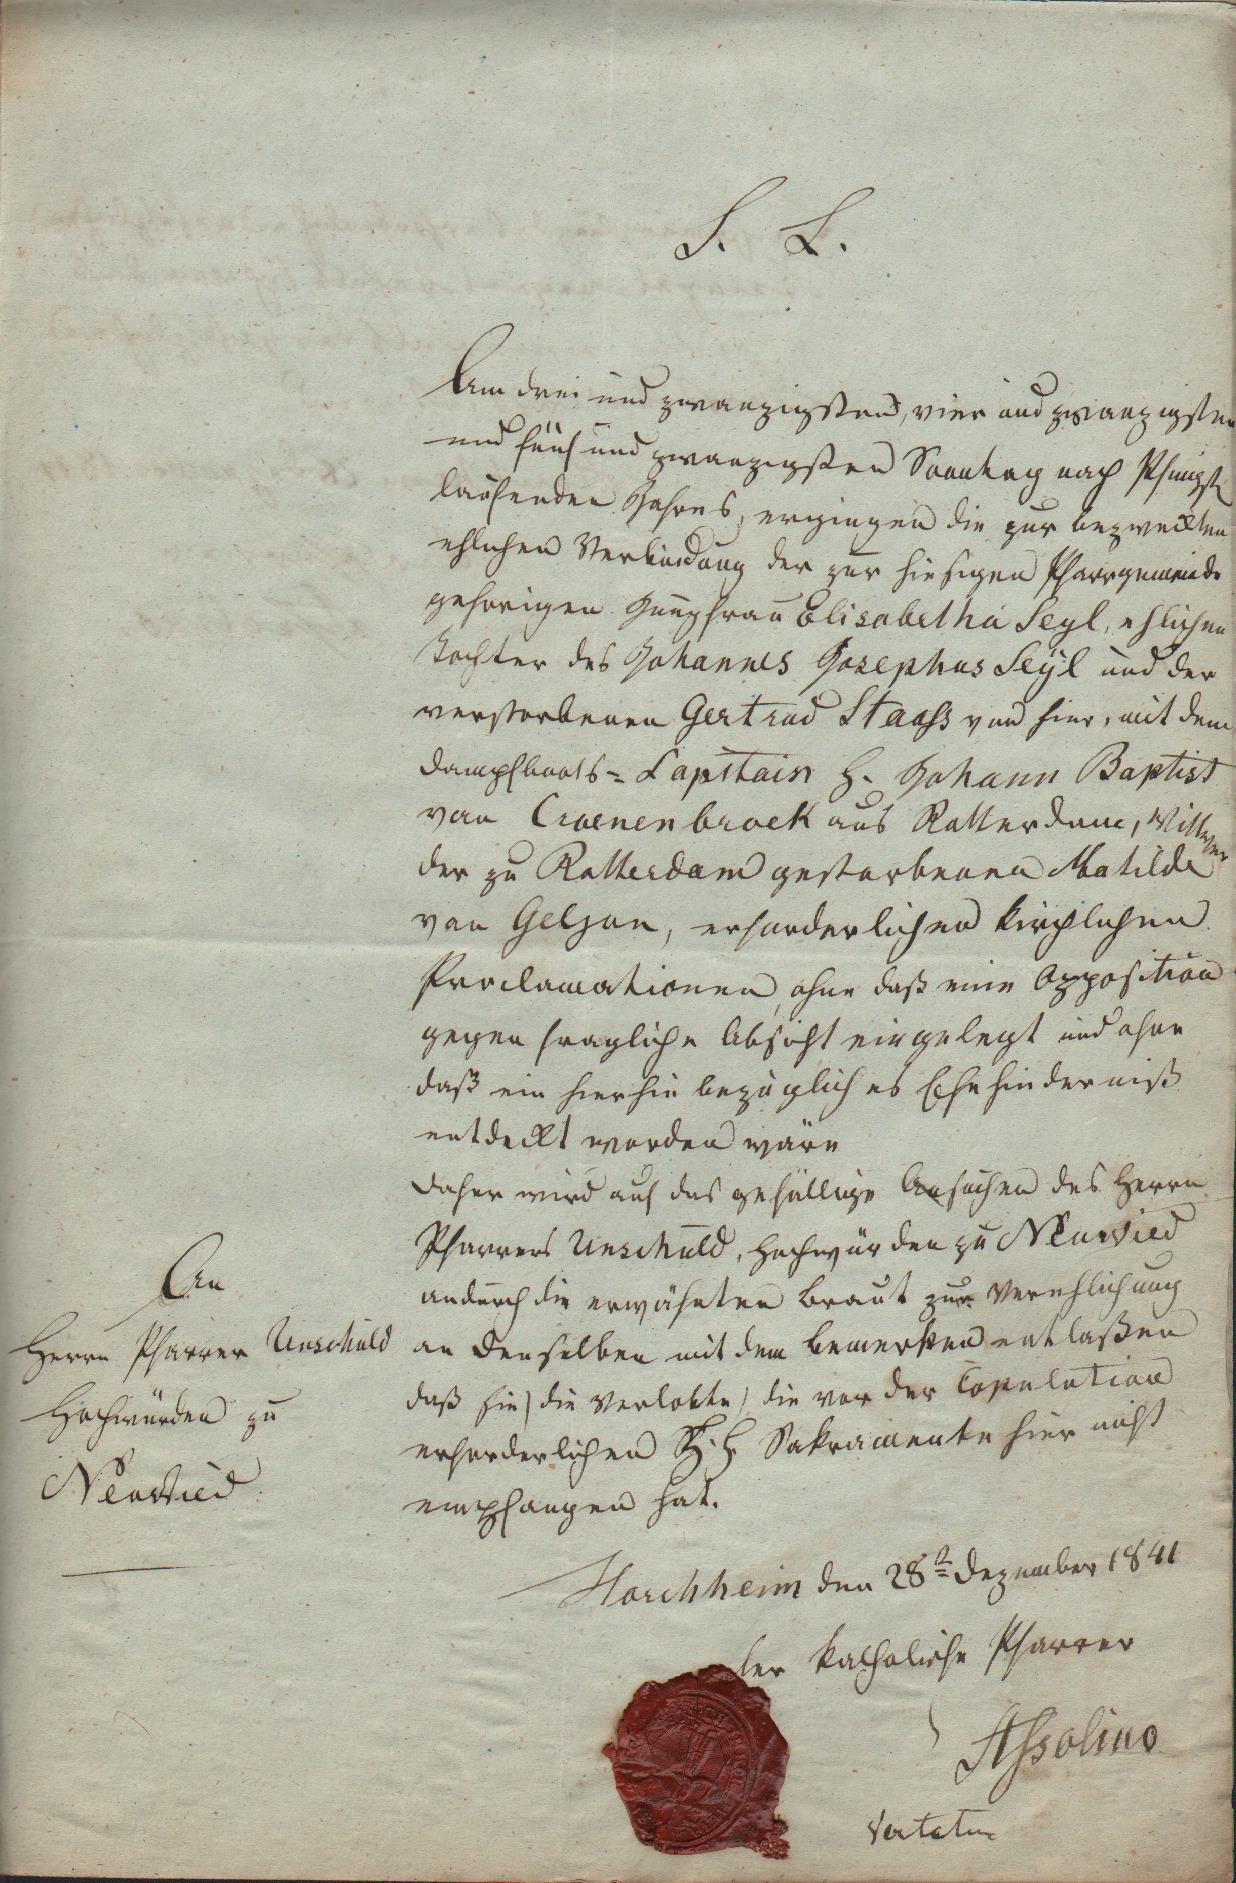 S. L.
Am drei und zwanzigsten, vier und zwanzigsten
und fünf und zwanzigsten Sonntag nach Pfingst
laufenden Jahres, ergingen die zur bezweckten
ehlichen Verbindung der zur hiesigen Pfarrgemeinde
gehörigen Jungfrau Elisabetha Seyl, ehlichen
Tochter des Johannes Josephus Seÿl und der
verstorbenen Gertrud Staahs von hier, mit dem
Dampfboots=Capitain H. Johann Baptist
van Croenenbroek aus Rotterdam, Wittwer
der zu Rotterdam gestorbenen Matilde
van Gelzon, erforderlichen kirchlichen
Proclamationen, ohne daß eine Opposition
gegen fragliche Absicht eingelegt und ohne
daß ein hierhin bezügliches Ehehinderniß
entdeckt worden wäre
Daher wird auf das gefällige Ansuchen des Herrn
Pfarrers Unschuld, Hochwürden zu Neuwied
andurch die erwähnten Braut zur Verehlichung
an denselben mit dem Bemerken entlaßen
daß sie (die Verlobte) die vor der Copulation
erforderlichen H.H. Sakramente hier nicht
empfangen hat.
An
Herrn Pfarrer Unschuld
Hochwürden zu
Neuwied
Horchheim den 28t Dezember 1841
der katholische Pfarrer
Assolino
Vertatur